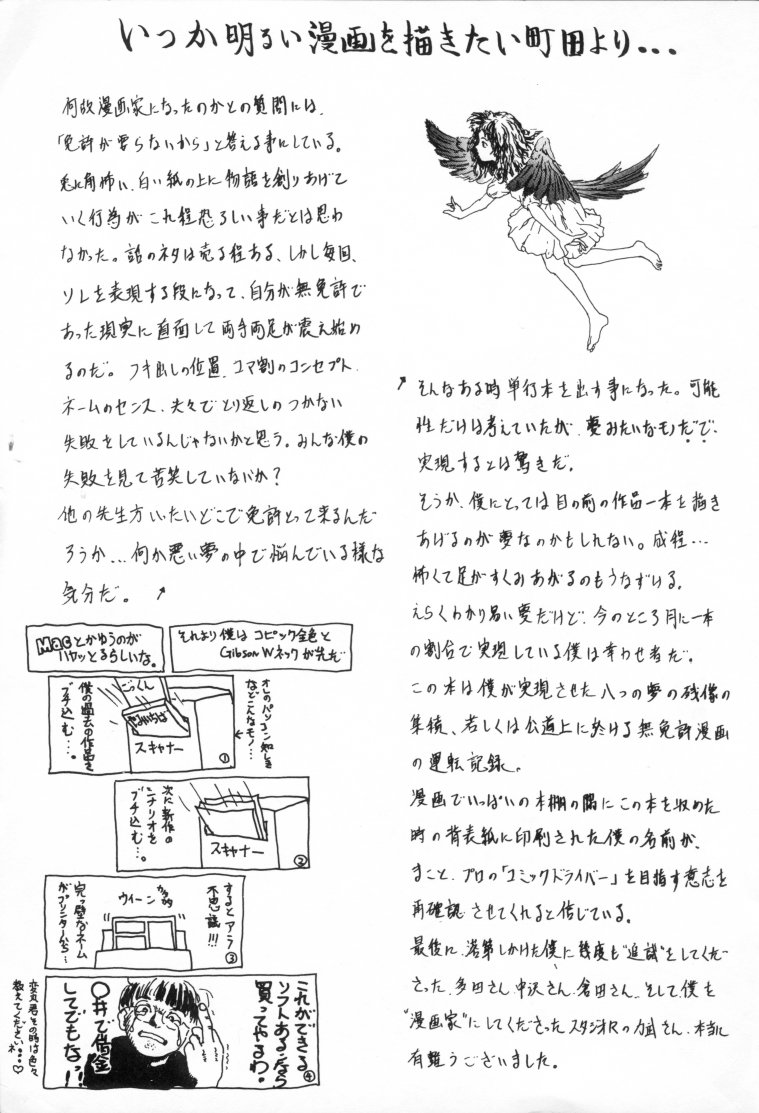 いつか明るい漫画を描きたい町田より...
何故漫画家になったのかとの質問には、
「免許が要らないから」と答える事にしている。
兎に角怖い、白い紙の上に物語を創りあげて
いく行為がこれ程恐ろしい事だとは思わ
なかった。話のネタは売る程ある、しかし毎回、
ソレを表現する段になって、自分が無免許で
あった現実に直面して両手両足が震え始め
るのだ。フキ出しの位置、コマ割のコンセプト、
ネームのセンス、夫々でとり返しのつかない
失敗をしているんじゃないかと思う。みんな僕の
失敗を見て苦笑していないか?
他の先生方いったいどこで免許とって来るんだ
ろうか...何か悪い夢の中で悩んでいる様な
気分だ。
そんなある時単行本を出す事になった。可能
性だけは考えていたが、夢みたいなモノだで、
実現するとは驚きだ。
そうか、僕にとっては目の前の作品一本を描き
あげるのが夢なのかもしれない。成程...
怖くて足がすくみあがるのもうなずける。
えらくわかり易い夢だけど、今のところ月に一本
の割合で実現している僕は幸わせ者だ。
この本は僕が実現させた八つの夢の残像の
集積、若しくは公道上に於ける無免許漫画
の運転記録。
漫画でいっぱいの本棚の隅にこの本を収めた
時の背表紙に印刷された僕の名前が、
まこと、プロの「コミックドライバー」を目指す意志を
再確認させてくれると信じている。
最後に、落第しかけた僕に幾度も"追試"をしてくだ
さった、多田さん、中沢さん、倉田さん、そして僕を
"漫画家"にしてくださったスタジオRの力武さん、本当に
有難うございました。
Macとかゆうのが
ハヤッとるらしいな。
それより僕はコピック全色と
Gibson Wネックが先だ
オレのパソコン知しき
などこんなモノ...
ごっくん
僕の過去の作品を
ブチ込む...。
スキャナー
①
次に新作の
シナリオを
ブチ込む...。
スキャナー
②
するとアラ
不思議!!!
ウィーン
完っ璧なネーム
がプリンターから...
③
これができる
ソフトあるなら
買ってやるわ。
○井で借金
してでもなっ!!
④
その時は色々
教えてくださいネ...♡